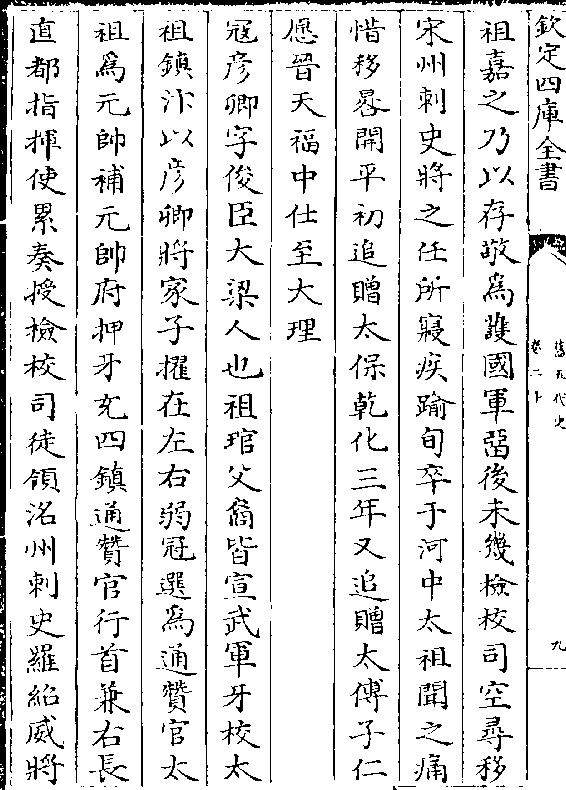 欽定四庫全書
舊五代史
卷二十
九
祖嘉之乃以存敬為護國軍留後未幾檢校司空尋移
宋州刺史將之任所寢疾踰旬卒于河中太祖聞之痛
惜移晷開平初追贈太保乾化三年又追贈太傅子仁
愿晉天福中仕至大理
寇彦卿字俊臣大梁人也祖琯父裔皆宣武軍牙校太
祖鎮汴以彦卿將家子擢在左右弱冠選為通贊官太
祖為元帥補元帥府押牙充四鎮通贊官行首兼右長
直都指揮使累奏授檢校司徒領洺州刺史羅紹威將